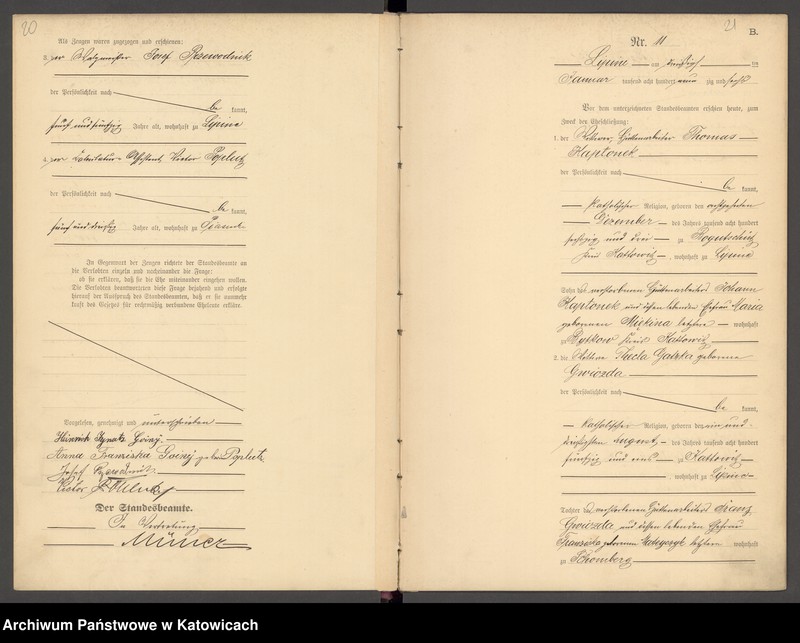 20
Als Zeugen waren zugezogen und erschienen:
3. der Platzmeister Josef Przewodnik
der Persönlichkeit nach
be kannt,
fünf und fünfzig Jahre alt, wohnhaft zu Lipine
4. der Assistent Victor Poplutz
der Persönlichkeit nach
be kannt,
fünf und dreißig Jahre alt, wohnhaft zu
In Gegenwart der Zeugen richtete der Standesbeamte an
die Verlobten einzeln und nacheinander die Frage:
ob sie erklären, daß sie die Ehe miteinander eingehen wollen.
Die Verlobten beantworteten diese Frage bejahend und erfolgte
hierauf der Ausspruch des Standesbeamten, daß er sie nunmehr
kraft des Gesetzes für rechtmäßig verbundene Eheleute erkläre.
Vorgelesen, genehmigt und unterschrieben
Heinrich Ignatz
Anna Franziska geb. Poplutz
Josef
Victor
Der Standesbeamte.
In Vertretung
21
B.
Nr. 11
Lipine am dreißig ten
Januar tausend acht hundert neun zig und sechs
Vor dem unterzeichneten Standesbeamten erschien heute, zum
Zweck der Eheschließung:
1. der Hüttenarbeiter Thomas
Kaptonek
der Persönlichkeit nach
be kannt,
katholischer Religion, geboren den achtzehnten
Dezember des Jahres tausend acht hundert
sechszig und drei zu Bogutschütz
Kreis Kattowitz, wohnhaft zu Lipine
Sohn des verstorbenen Hüttenarbeiters Johann
Kaptonek und dessen lebenden Ehefrau Maria
geborenen Miękina letztere wohnhaft
zu Bytkow Kreis Kattowitz
2. die Wittwe Tecla Gatzka geborene
Gwiozda
der Persönlichkeit nach
be kannt,
katholischer Religion, geboren den ein und
dreißigsten August des Jahres tausend acht hundert
fünfzig und eins zu Kattowitz
, wohnhaft zu Lipine
Tochter des verstorbenen Hüttenarbeiters Franz
Gwiozda und dessen lebenden Ehefrau
Franziska geborenen letztere wohnhaft
zu Schomberg
Archiwum Państwowe w Katowicach